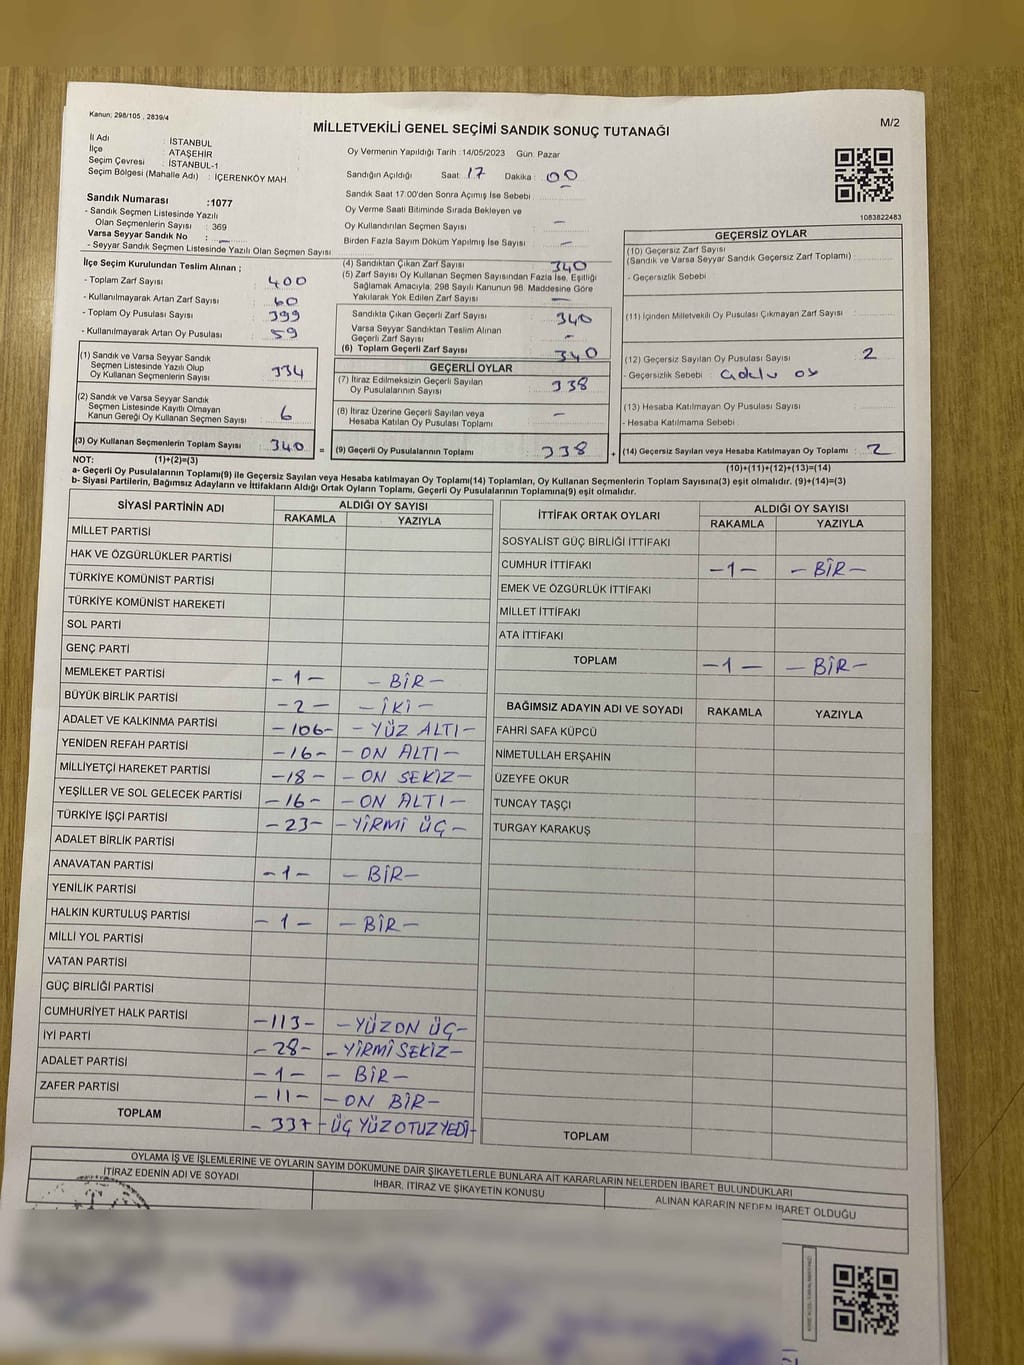 Kanun; 298/105 , 2839/4
M/2
MİLLETVEKİLİ GENEL SEÇİMİ SANDIK SONUÇ TUTANAĞI
İl Adı : İSTANBUL
İlçe : ATAŞEHİR
Seçim Çevresi : İSTANBUL-1
Seçim Bölgesi (Mahalle Adı) : İÇERENKÖY MAH.
Sandık Numarası :1077
- Sandık Seçmen Listesinde Yazılı
Olan Seçmenlerin Sayısı : 369
Varsa Seyyar Sandık No : –
- Seyyar Sandık Seçmen Listesinde Yazılı Olan Seçmen Sayısı
Oy Vermenin Yapıldığı Tarih :14/05/2023 Gün: Pazar
Sandığın Açıldığı Saat: 17 Dakika : 00
Sandık Saat 17:00'den Sonra Açımış İse Sebebi
Oy Verme Saati Bitiminde Sırada Bekleyen ve
Oy Kullandırılan Seçmen Sayısı –
Birden Fazla Sayım Döküm Yapılmış İse Sayısı –
1083822483
İlçe Seçim Kurulundan Teslim Alınan ;
- Toplam Zarf Sayısı : 400
- Kullanılmayarak Artan Zarf Sayısı : 60
- Toplam Oy Pusulası Sayısı : 399
- Kullanılmayarak Artan Oy Pusulası : 59
(1) Sandık ve Varsa Seyyar Sandık
Seçmen Listesinde Yazılı Olup
Oy Kullanan Seçmenlerin Sayısı : 334
(2) Sandık ve Varsa Seyyar Sandık
Seçmen Listesinde Kayıtlı Olmayan
Kanun Gereği Oy Kullanan Seçmen Sayısı : 6
(3) Oy Kullanan Seçmenlerin Toplam Sayısı : 340
(1)+(2)=(3)
(4) Sandıktan Çıkan Zarf Sayısı 340
(5) Zarf Sayısı Oy Kullanan Seçmen Sayısından Fazla İse, Eşitliği
Sağlamak Amacıyla; 298 Sayılı Kanunun 98. Maddesine Göre
Yakılarak Yok Edilen Zarf Sayısı –
Sandıkta Çıkan Geçerli Zarf Sayısı 340
Varsa Seyyar Sandıktan Teslim Alınan
Geçerli Zarf Sayısı –
(6) Toplam Geçerli Zarf Sayısı 340
GEÇERLİ OYLAR
(7) İtiraz Edilmeksizin Geçerli Sayılan
Oy Pusulalarının Sayısı : 338
(8) İtiraz Üzerine Geçerli Sayılan veya
Hesaba Katılan Oy Pusulası Toplamı –
= (9) Geçerli Oy Pusulalarının Toplamı : 338
GEÇERSİZ OYLAR
(10) Geçersiz Zarf Sayısı
(Sandık ve Varsa Seyyar Sandık Geçersiz Zarf Toplamı) :
- Geçersizlik Sebebi
(11) İçinden Milletvekili Oy Pusulası Çıkmayan Zarf Sayısı :
(12) Geçersiz Sayılan Oy Pusulası Sayısı : 2
- Geçersizlik Sebebi : Çoklu oy
(13) Hesaba Katılmayan Oy Pusulası Sayısı :
- Hesaba Katılmama Sebebi :
+ (14) Geçersiz Sayılan veya Hesaba Katılmayan Oy Toplamı : 2
(10)+(11)+(12)+(13)=(14)
NOT:
a- Geçerli Oy Pusulalarının Toplamı(9) ile Geçersiz Sayılan veya Hesaba katılmayan Oy Toplamı(14) Toplamları, Oy Kullanan Seçmenlerin Toplam Sayısına(3) eşit olmalıdır. (9)+(14)=(3)
b- Siyasi Partilerin, Bağımsız Adayların ve İttifakların Aldığı Oy Sayıları Toplamı, Geçerli Oy Pusulalarının Toplamına(9) eşit olmalıdır.
SİYASİ PARTİNİN ADI ALDIĞI OY SAYISI
RAKAMLA YAZIYLA
MİLLET PARTİSİ
HAK VE ÖZGÜRLÜKLER PARTİSİ
TÜRKİYE KOMÜNİST PARTİSİ
TÜRKİYE KOMÜNİST HAREKETİ
SOL PARTİ
GENÇ PARTİ
MEMLEKET PARTİSİ -1- -BİR-
BÜYÜK BİRLİK PARTİSİ -2- -İKİ-
ADALET VE KALKINMA PARTİSİ -106- -YÜZ ALTI-
YENİDEN REFAH PARTİSİ -16- -ON ALTI-
MİLLİYETÇİ HAREKET PARTİSİ -18- -ON SEKİZ-
YEŞİLLER VE SOL GELECEK PARTİSİ -16- -ON ALTI-
TÜRKİYE İŞÇİ PARTİSİ -23- -YİRMİ ÜÇ-
ADALET BİRLİK PARTİSİ
ANAVATAN PARTİSİ -1- -BİR-
YENİLİK PARTİSİ
HALKIN KURTULUŞ PARTİSİ -1- -BİR-
MİLLİ YOL PARTİSİ
VATAN PARTİSİ
GÜÇ BİRLİĞİ PARTİSİ
CUMHURİYET HALK PARTİSİ -113- -YÜZ ON ÜÇ-
İYİ PARTİ -28- -YİRMİ SEKİZ-
ADALET PARTİSİ -1- -BİR-
ZAFER PARTİSİ -11- -ON BİR-
TOPLAM -337 -ÜÇ YÜZ OTUZ YEDİ-
İTTİFAK ORTAK OYLARI ALDIĞI OY SAYISI
RAKAMLA YAZIYLA
SOSYALİST GÜÇ BİRLİĞİ İTTİFAKI
CUMHUR İTTİFAKI -1- -BİR-
EMEK VE ÖZGÜRLÜK İTTİFAKI
MİLLET İTTİFAKI
ATA İTTİFAKI
TOPLAM -1- -BİR-
BAĞIMSIZ ADAYIN ADI VE SOYADI RAKAMLA YAZIYLA
FAHRİ SAFA KÜPCÜ
NİMETULLAH ERŞAHİN
ÜZEYFE OKUR
TUNCAY TAŞÇI
TURGAY KARAKUŞ
TOPLAM
OYLAMA İŞ VE İŞLEMLERİNE VE OYLARIN SAYIM DÖKÜMÜNE DAİR ŞİKAYETLERLE BUNLARA AİT KARARLARIN NELERDEN İBARET BULUNDUKLARI
İTİRAZ EDENİN ADI VE SOYADI İHBAR, İTİRAZ VE ŞİKAYETİN KONUSU ALINAN KARARIN NEDEN İBARET OLDUĞU